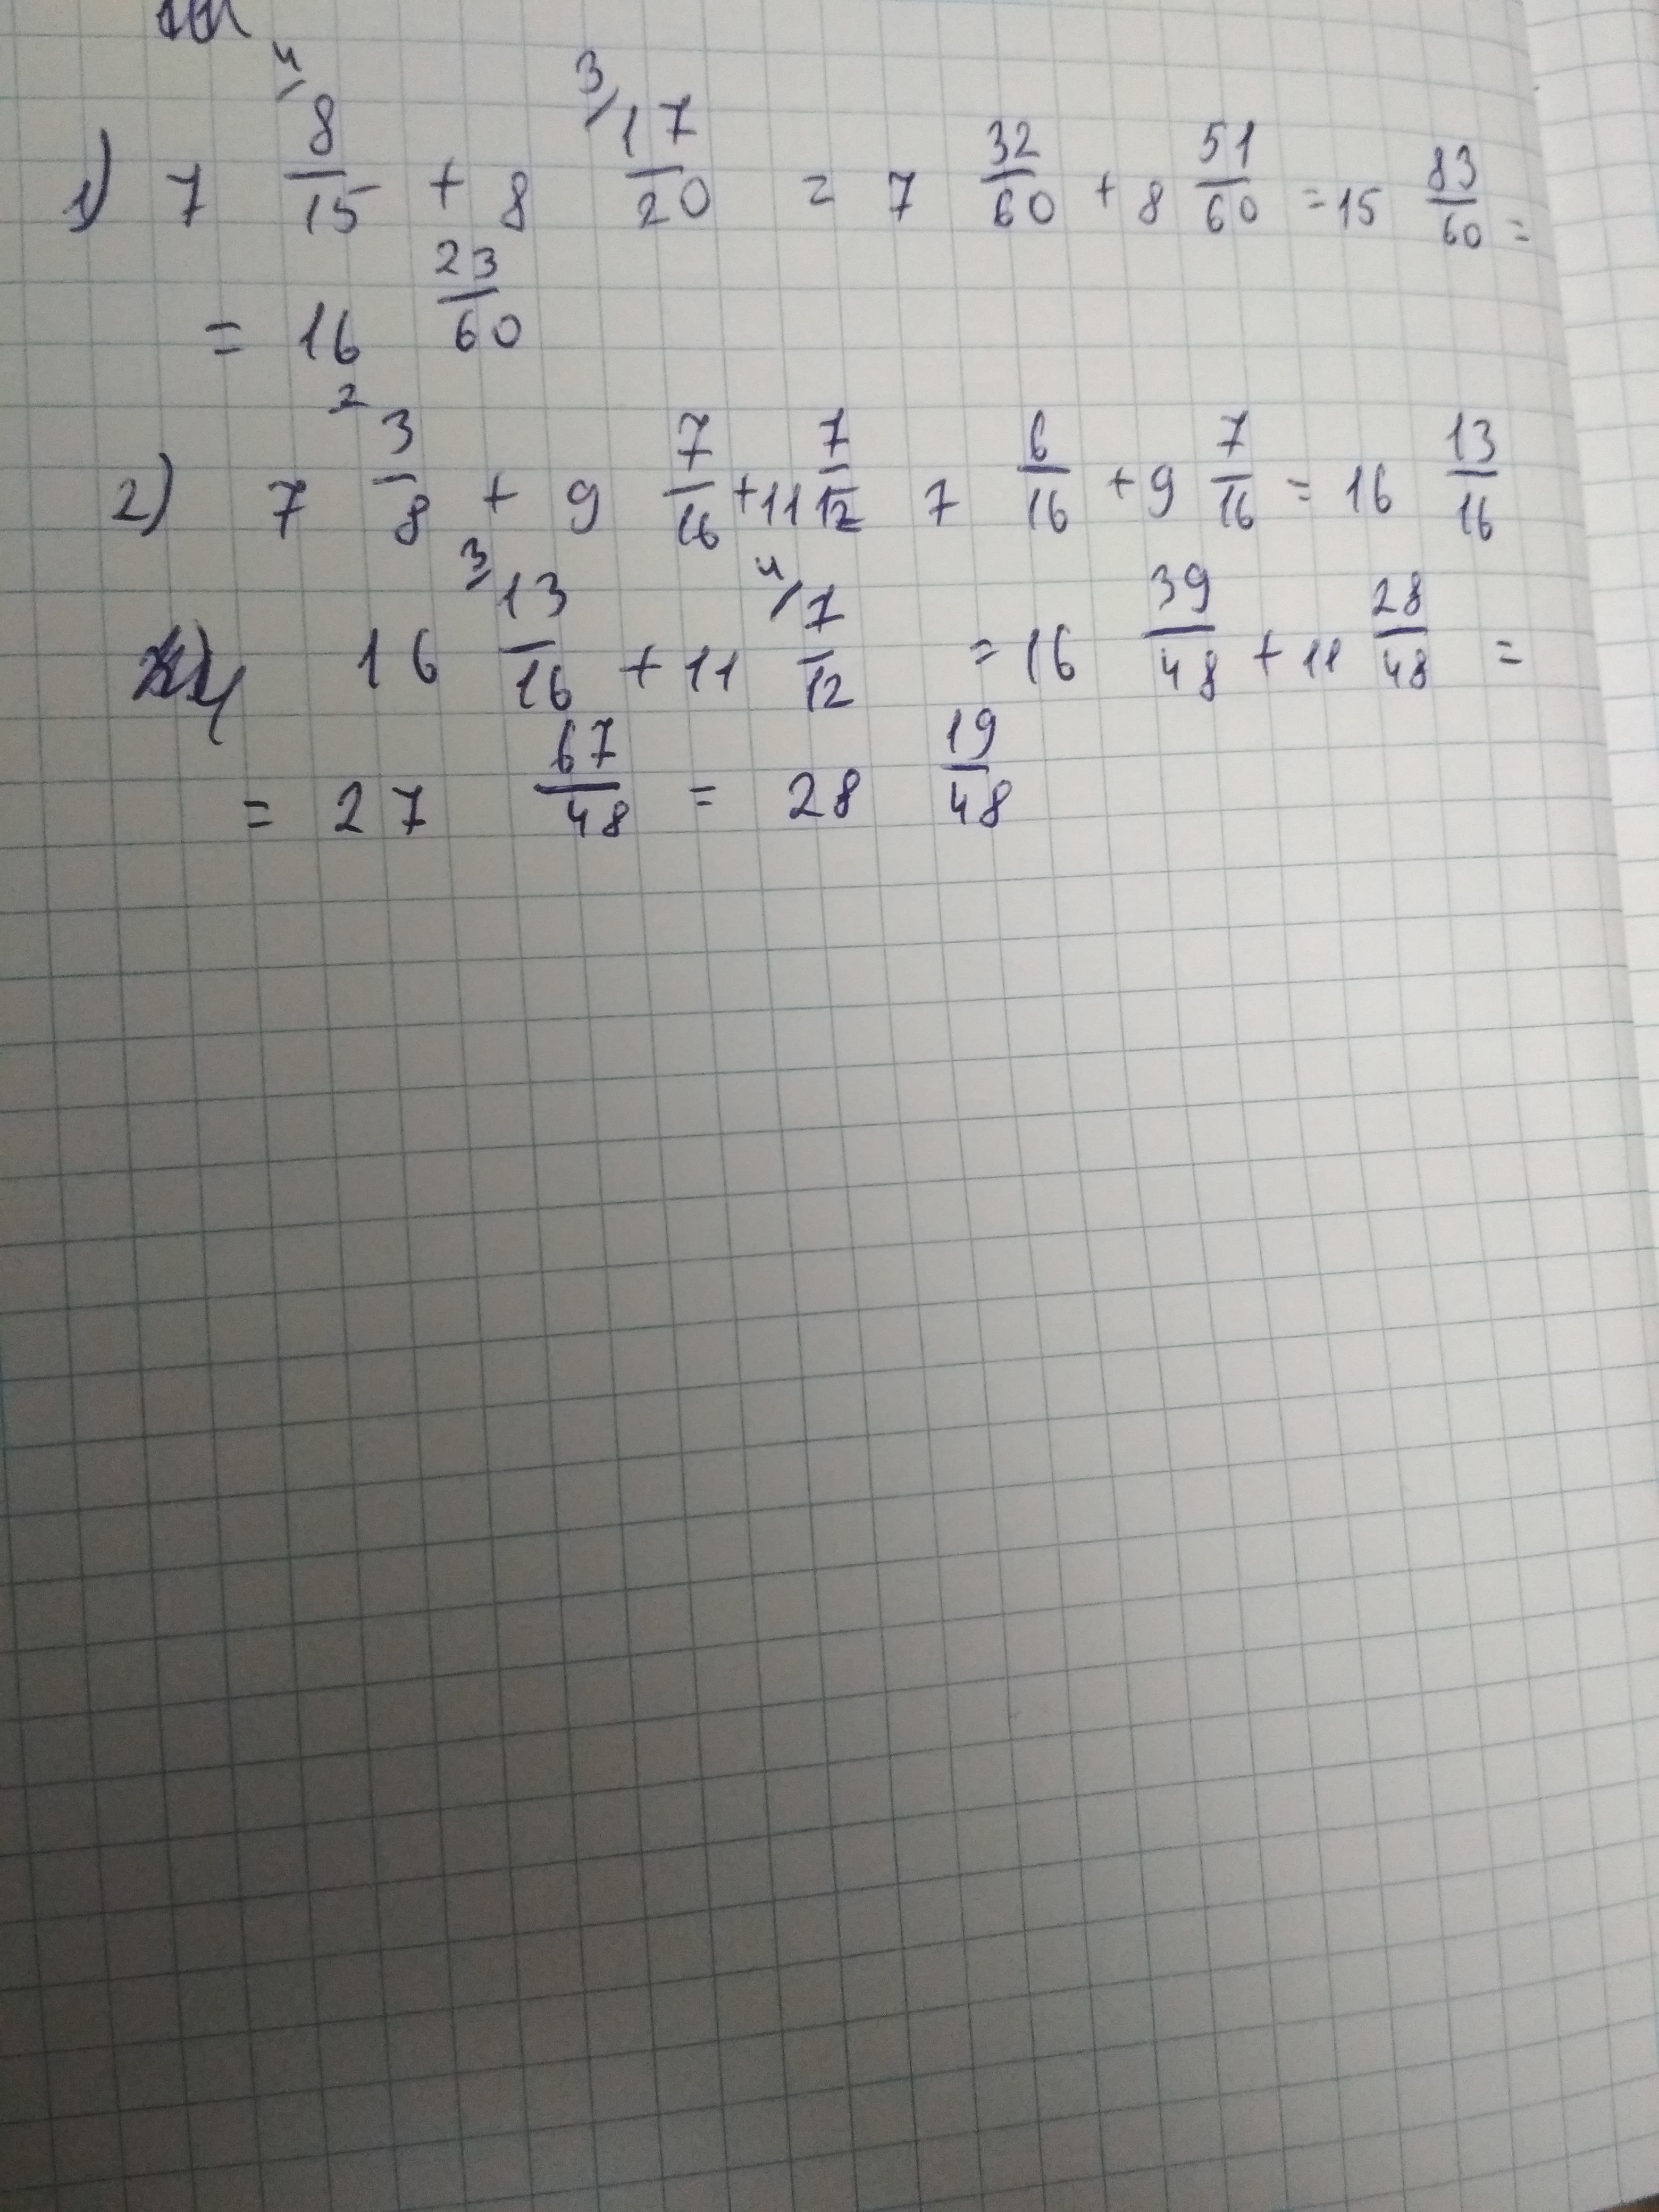 1) 7 4/ 8/15 + 8 3/ 17/20 = 7 32/60 + 8 51/60 = 15 83/60 =
= 16 23/60
2) 7 2 3/8 + 9 7/16 + 11 7/12 7 6/16 + 9 7/16 = 16 13/16
16 3/ 13/16 + 11 4/ 7/12 = 16 39/48 + 11 28/48 =
= 27 67/48 = 28 19/48